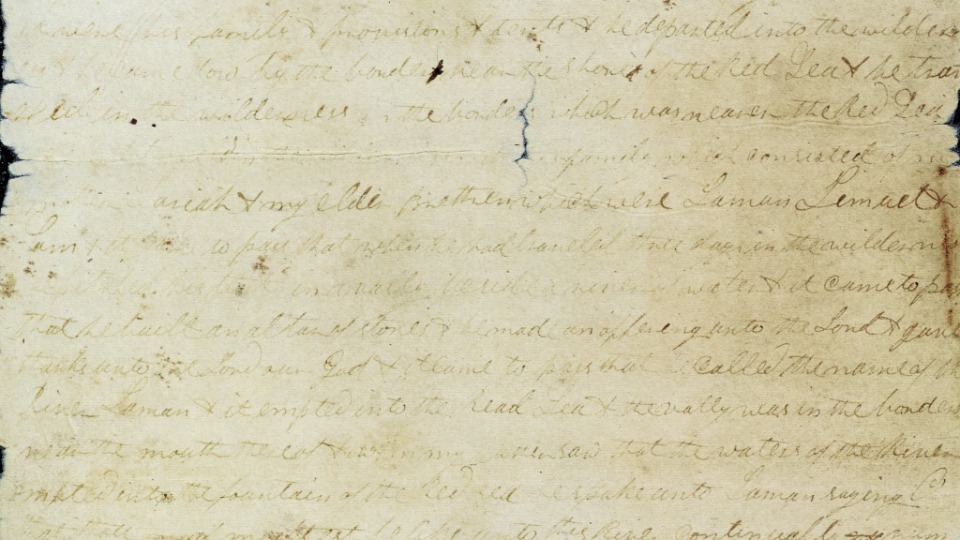 family & provisions & tents & he departed into the wilder
& he came down by the borders near the shore of the Red Sea & he trav
in the wilderness in the borders which was nearer the Red Sea
family which consisted of m
ariah & my elder Brethren which were Laman Lemuel &
Sam & it came to pass that when he had traveled three days in the wilderness
in a vally beside a river of water & it came to pass
that he built an altar of stones & he made an offering unto the Lord & gave
thanks unto the Lord our God & it came to pass that he called the name of the
River Laman & it emptied into the Read Sea & the vally was in the borders
near the mouth thereof & when my father saw that the waters of the River
emptied into the fountain of the Red sea he spake unto Laman saying O
that thou might be like unto this River continually